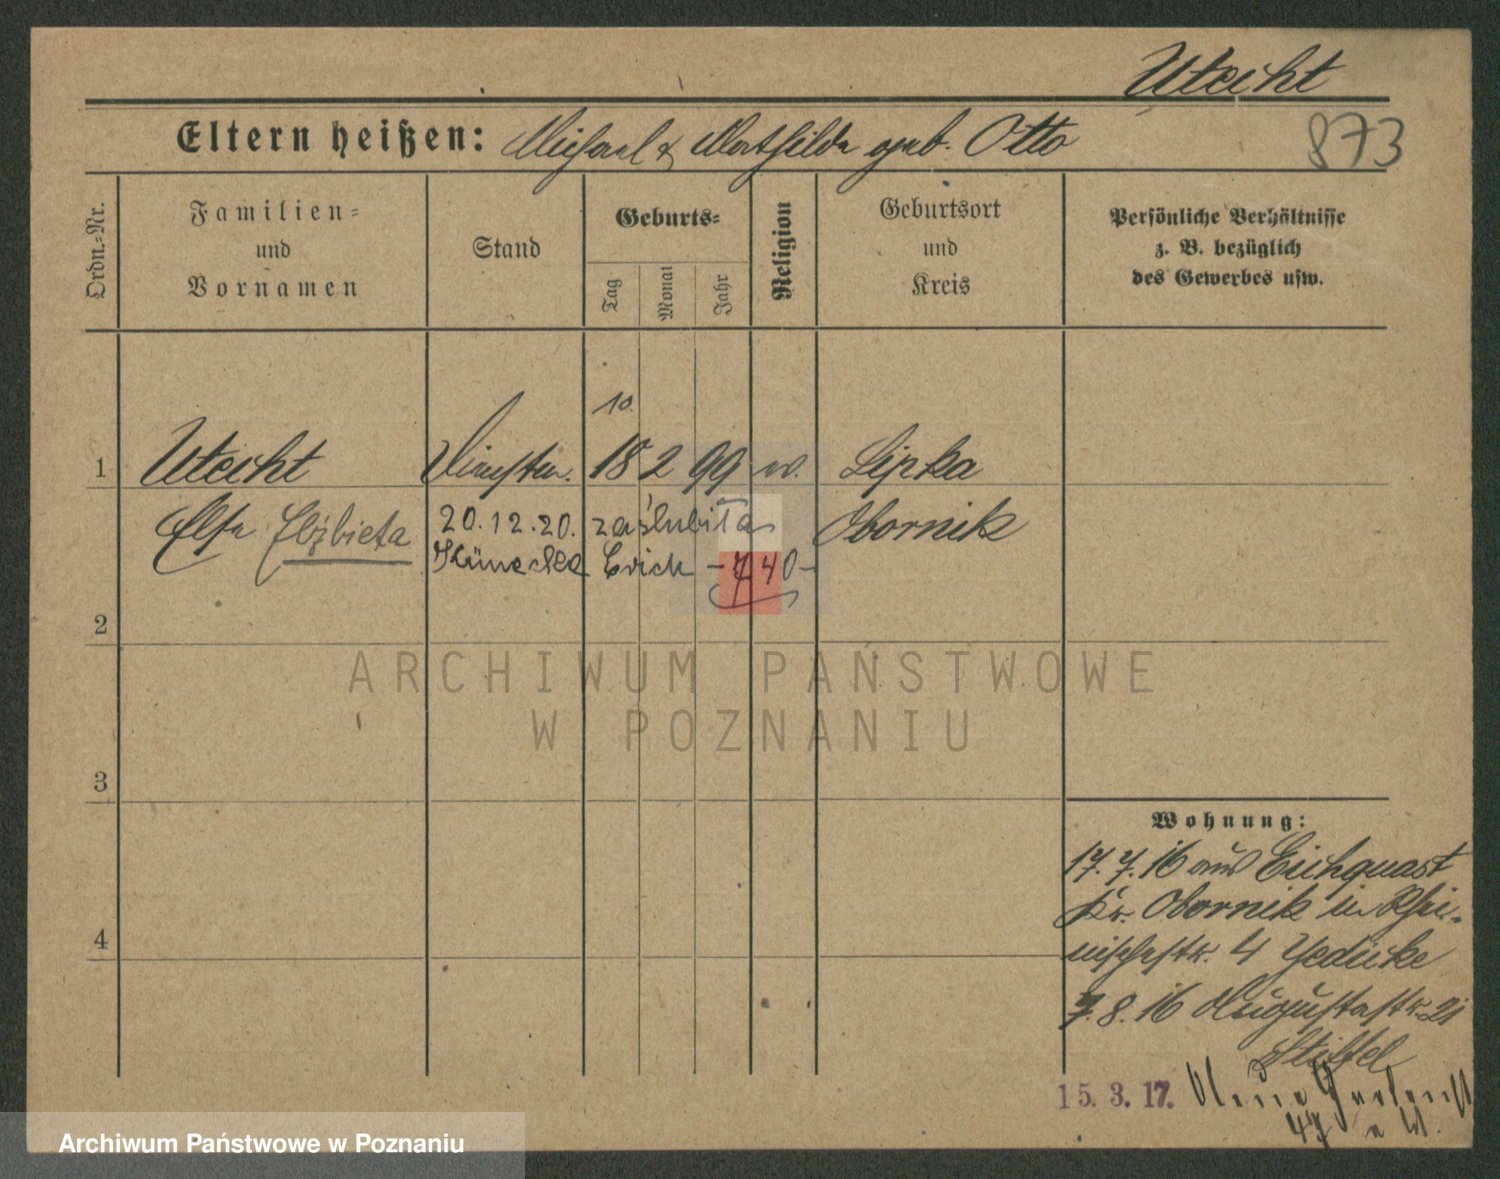 Utecht
Eltern heißen: Michael & Mathilde geb. Otto
873
Ordn.-Nr.
Familien-
und
Vornamen
Stand
Geburts-
Tag
Monat
Jahr
Religion
Geburtsort
und
Kreis
Persönliche Verhältnisse
z. B. bezüglich
des Gewerbes usw.
10.
1 Utecht 18 2 99 Lipka
Elsa Elżbieta 20.12.20. zaślubiła Obornik
Künecke Erich -740-
2
3
4
Wohnung:
17.7.16 aus Eichquast
Kr. Obornik in Rhei-
nischestr. 4 Jedicke
7.8.16 Augustastr. 21
Stiffel
15. 3. 17. Neue Gartenst
47
ARCHIWUM PAŃSTWOWE
W POZNANIU
Archiwum Państwowe w Poznaniu